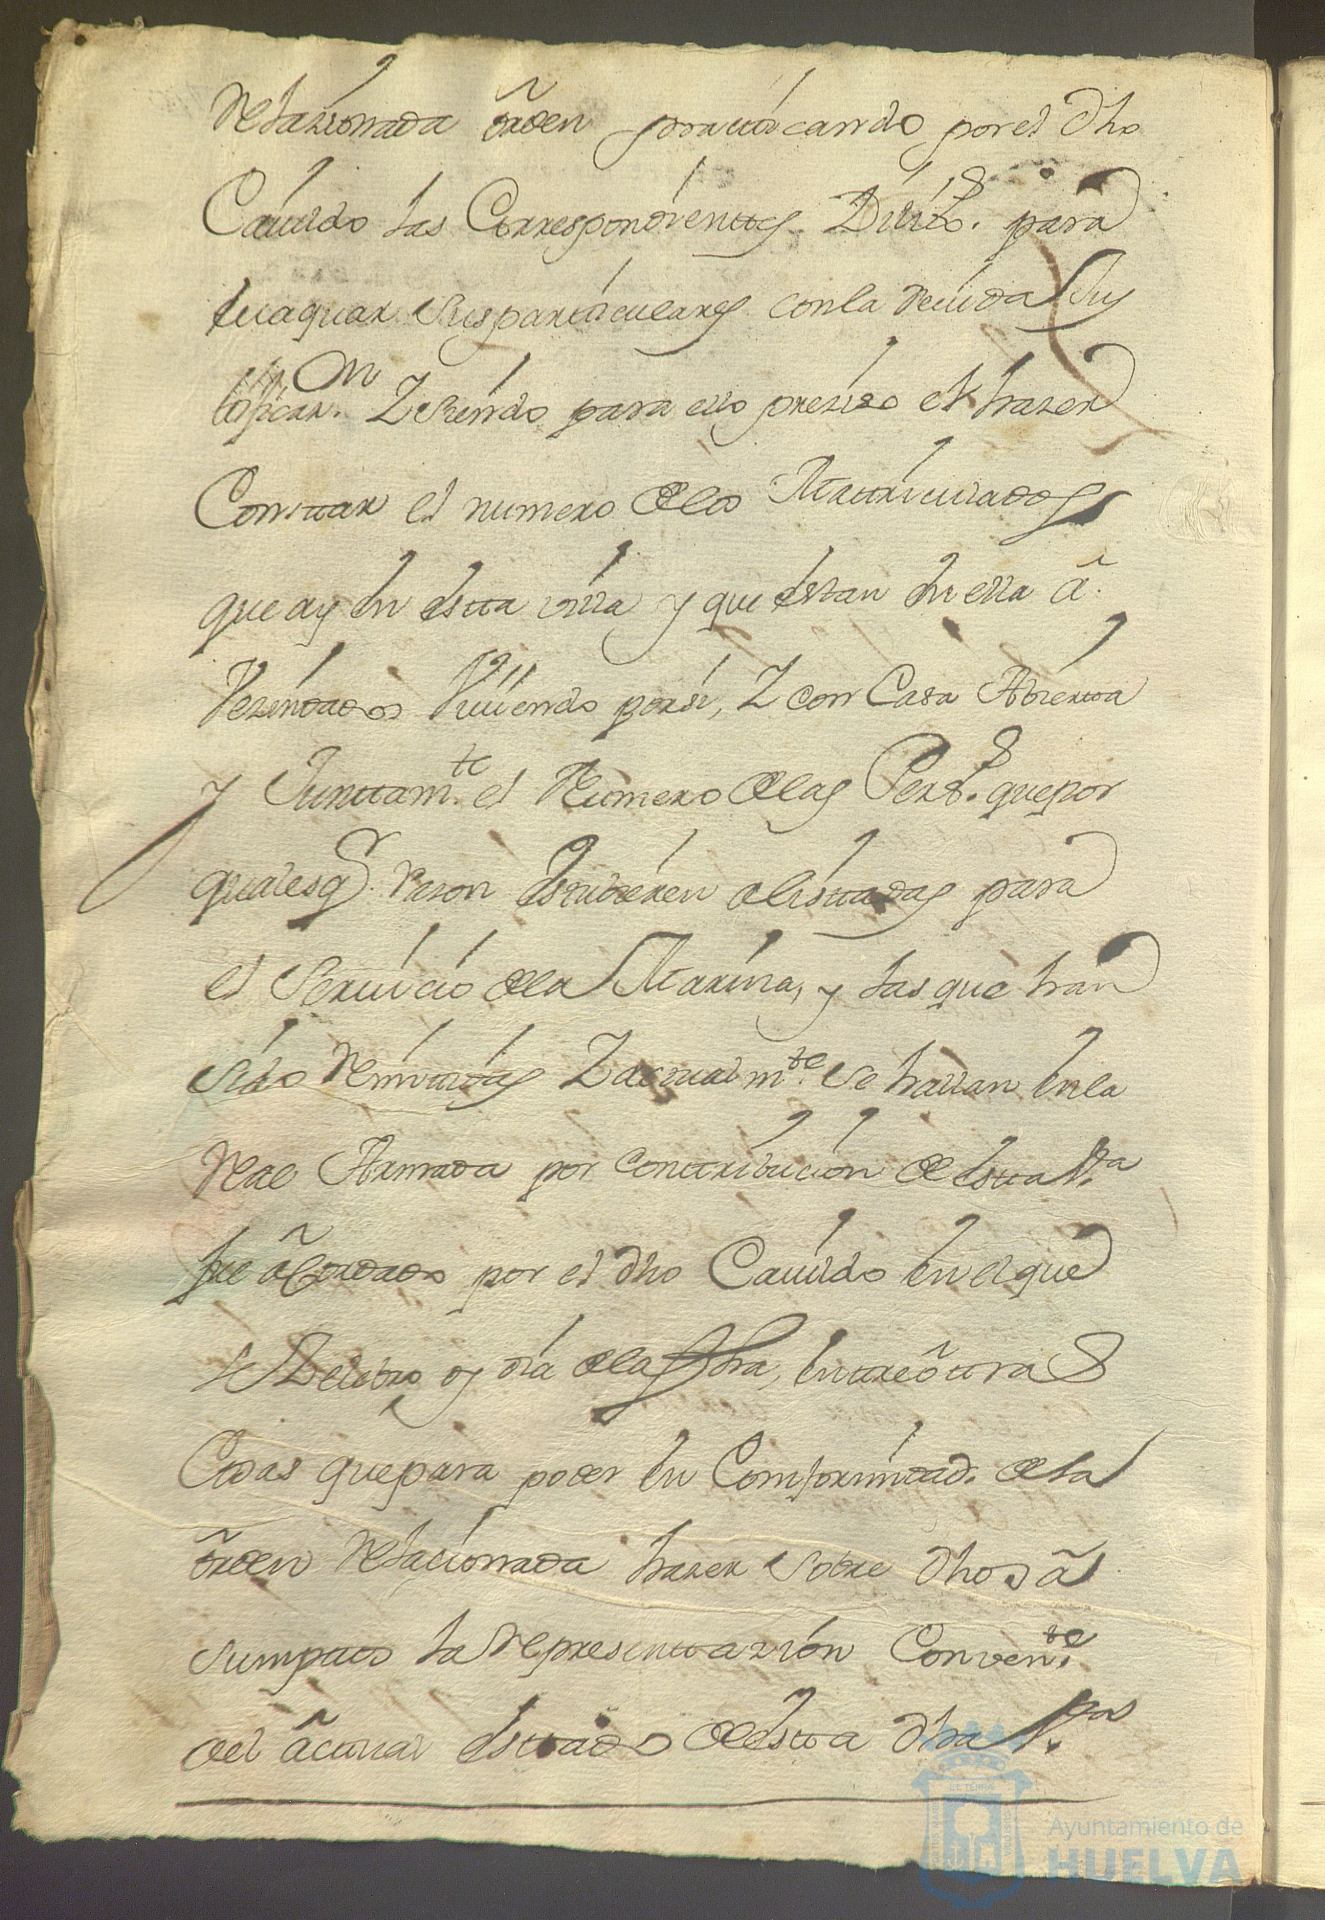 relazionada orden practicando por el dho
Cauildo las Correspondientes Dilixs. para
euaquar sus particulares con la deuida Jus
tificazn. Y siendo para ello preziso el hazer
Constar el numero de los Matriculados
que ay en esta villa y que estan en ella a
Vezindados Viuiendo por si, Y con Casa Abierta
y Juntamte. el Numero de las Perss. que por
qualesqr. razon estubieren alistadas para
el Seruicio de la Marina, y las que han
sido Remitidas Y actualmte. se hallan en la
Real Armada por contribucion de esta Va.
fue acordado por el dho Cauildo en el que
se Zelebro oy dia de la fha, entre otras
Cosas que para poder en Comformidad. de la
orden relacionada hazer sobre dhos a
sumptos la representazion Convente.
del actual estado de esta dha Va.
Ayuntamiento de
HUELVA